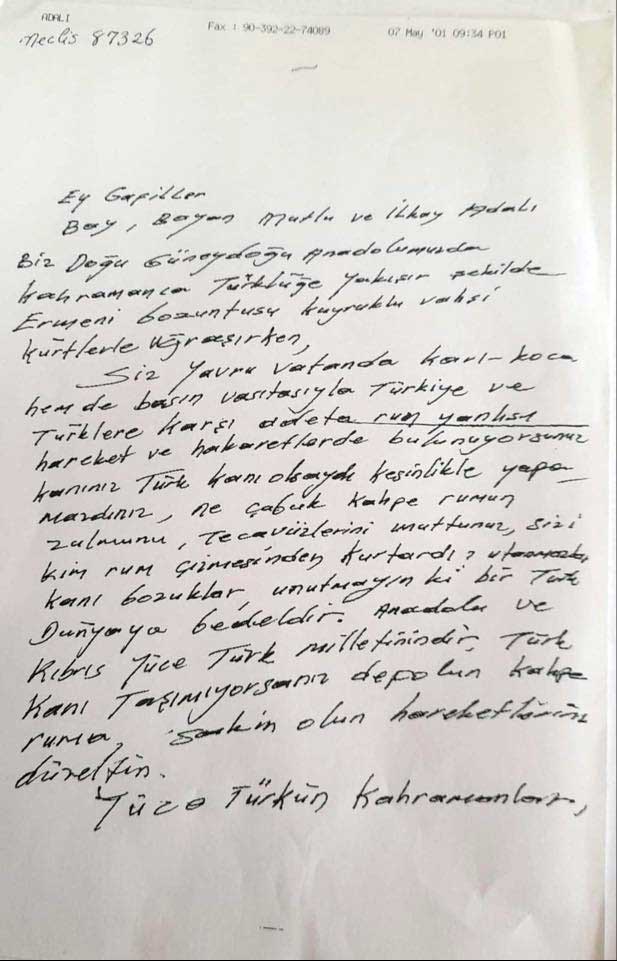 ADALI
Meclis 87326
Fax : 90-392-22-74089
07 May '01 09:34 P01
Ey Gafiller
Bay, Bayan Mutlu ve İlkay Adalı
Biz Doğu Güneydoğu Anadolumuzda
kahramanca Türklüğe yakışır şekilde
Ermeni bozuntusu kuyruklu vahşi
kürtlerle uğraşırken,
Siz Yavru vatanda karı-koca
hem de basın vasıtasıyla Türkiye ve
Türklere karşı adeta rum yanlısı
hareket ve hakaretlerde bulunuyorsunuz
kanınız Türk kanı olsaydı kesinlikle yapa-
mazdınız, ne çabuk kahpe rumun
zulmunu, tecavüzlerini unuttunuz, sizi
kim rum çizmesinden kurtardı? utanmazlar
kanı bozuklar, unutmayın ki bir Türk
Dünyaya bedeldir. Anadolu ve
Kıbrıs Yüce Türk milletinindir. Türk
kanı Taşımıyorsanız defolun kahpe
ruma, sakin olun hareketlerinizi
düzeltin.
Yüce Türkün Kahramanları,